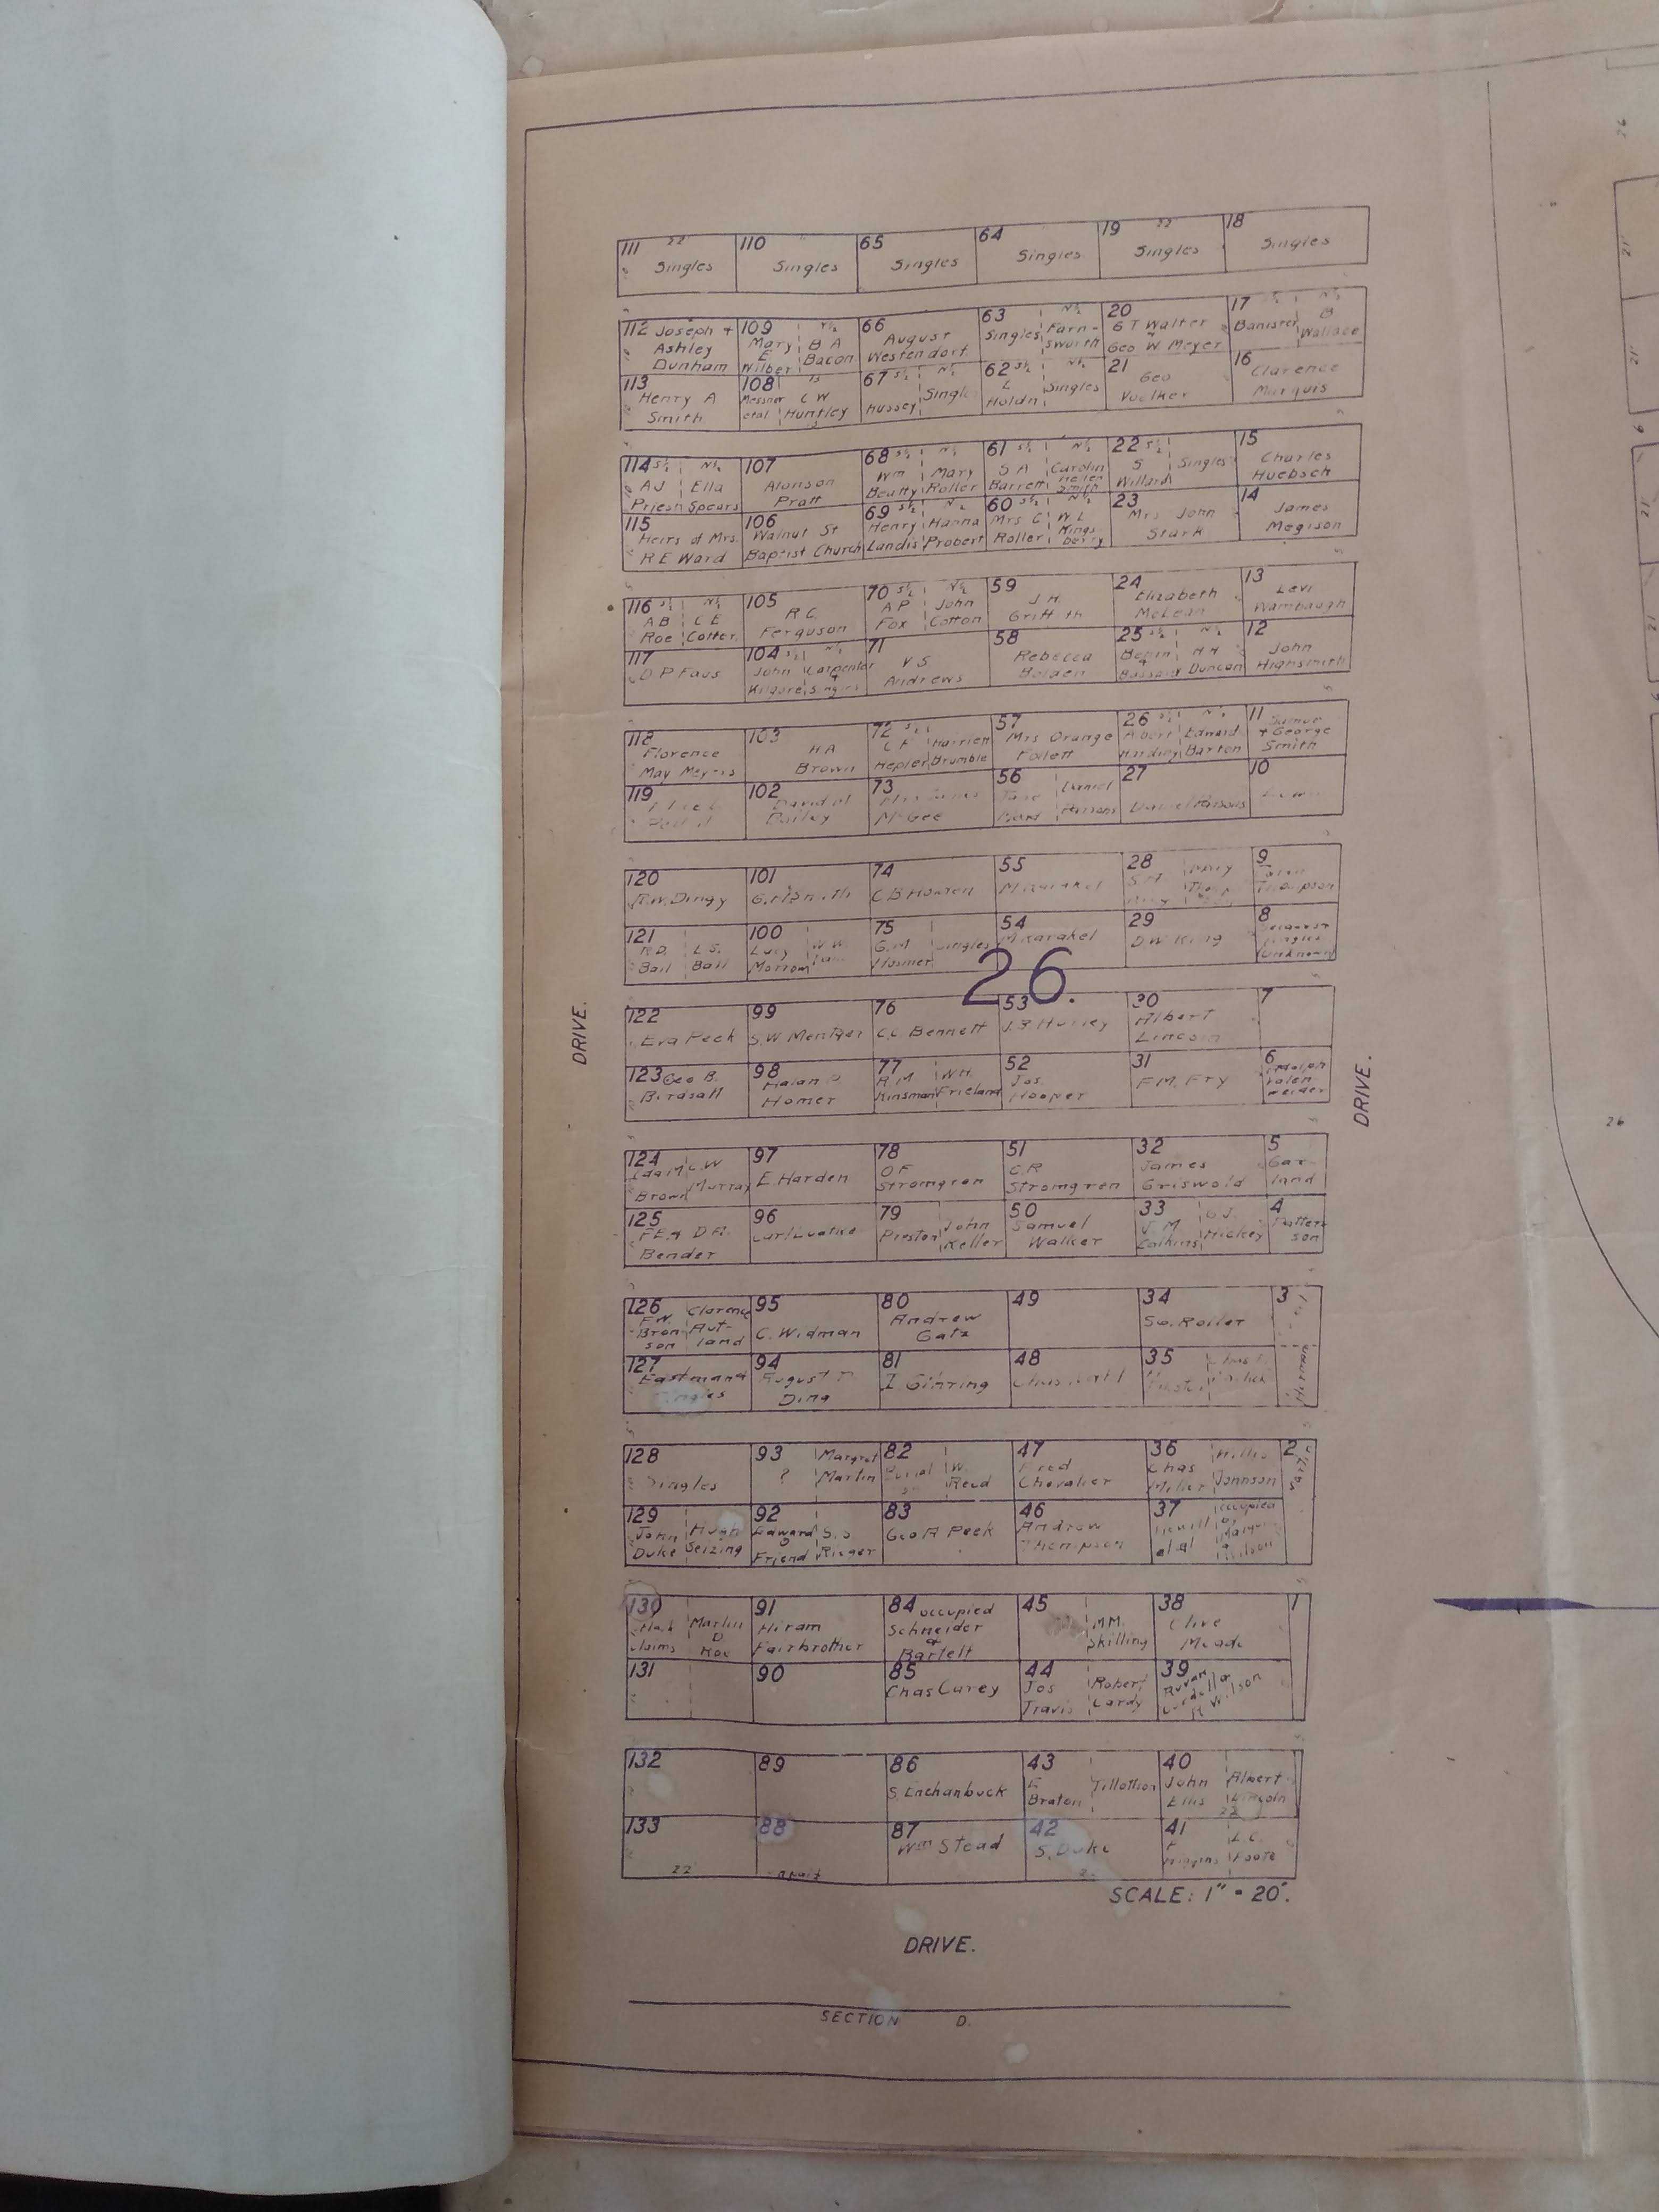 111 22' Singles
110 Singles
65 Singles
64 Singles
19 22' Singles
18 Singles
112 Joseph +
Ashley
Dunham
109 N½
Mary
E
Wilber
B A
Bacon
66
August
Westendorf
63 N½
Singles
Farn-
sworth
20
G T Walter
Geo W Meyer
17 S½ N½
Banister
B
Wallace
113
Henry A
Smith
108
Messner
etal
C W
Huntley
67 S½ N½
Hussey
Singles
62 S½ N½
L
Holdn
Singles
21
Geo
Voelker
16
Clarence
Marquis
114 S½ N½
A J
Priest
Ella
Spears
107
Alonson
Pratt
68 S½ N½
Wm
Beatty
Mary
Roller
61 S½ N½
S A
Barrett
Carolin
Hellen
Smith
22 S½
S
Willard
Singles
15
Charles
Huebsch
115
Heirs of Mrs.
R E Ward
106
Walnut St
Baptist Church
69 S½ N½
Henry
Landis
Hanna
Probert
60 S½ N½
Mrs C
Roller
W L
Kings
berry
23
Mrs John
Stark
14
James
Megison
116 S½ N½
A B
Roe
C E
Cotter
105
R C.
Ferguson
70 S½ N½
A P
Fox
John
Cotton
59
J. H.
Griffith
24
Elizabeth
McLean
13
Levi
Wambaugh
117
D P Faus
104 S½ N½
John
Kilgore
Carpenter
+
Singles
71
V S
Andrews
58
Rebecca
Bolden
25 S½ N½
Bassard
H H
Duncan
12
John
Highsmith
118
Florence
May Meyers
103
H A
Brown
72 S½
C F
Hepler
Harriett
Brumble
57
Mrs Orange
Follett
26 S½ N½
Albert
Harding
Edward
Barton
11
+ George
Smith
119
102
David M
Bailey
73
Mrs James
McGee
56
Jane
Daniel
Parsons
27
Daniel Parsons
10
120
R.W. Dingy
101
G. H. Smith
74
C B Homen
55
M Karakel
28
Mary
9
Thompson
121
R D.
Ball
L S.
Ball
100
Lucy
Morrom
W W.
75
G. M
Hosmer
Singles
54
M Karakel
29
D W King
8
Singles
Unknown
26.
DRIVE.
122
Eva Peck
99
S. W Mentzer
76
C. C. Bennett
53
J. B. Hurley
30
Albert
Lincoln
7
123 Geo B.
Birdsall
98
Homer
77
R. M
Kinsman
W H.
Frieland
52
Jos.
Hooper
31
F M. Fry
6
DRIVE.
124
Brown
C. W
Murray
97
E. Harden
78
O F
Stromgren
51
C. R
Stromgren
32
James
Griswold
5
Gar-
land
125
F E + D A.
Bender
96
Carl Luatke
79
Preston
John
Keller
50
Samuel
Walker
33
J. M
Calkins
G. J.
Hickey
4
Patter-
son
126
F W.
Bron-
son
Clarence
Aut-
land
95
C. Widman
80
Andrew
Gatz
49
34
Sa. Roller
3
127
Eastman
Singles
94
August
Ding
81
I. Gihring
48
Chas Wall
35
Herman
128
Singles
93
?
Margret
Martin
82
Burial
W.
Reed
47
Fred
Chevalier
36
Chas
Miller
Willis
Johnson
2
129
John
Duke
Hugh
Seizing
92
Edward
O
Friend
S. S
Rieger
83
Geo A Peek
46
Andrew
Thompson
37
et.al
occupied
by
Wilson
130
Claims
Martin
D
Roe
91
Hiram
Fairbrother
84 occupied
Schneider
&
Bartelt
45
M M.
Skilling
38
Clive
Meade
1
131
90
85
Chas Curey
44
Jos
Travis
Robert
Cardy
39
Wilson
132
89
86
S. Enchanbuck
43
E
Braton
Tillottson
40
John
Ellis
Albert
Lincoln
22
133
22'
88
87
Wm Stead
42
S. Duke
41
F
Higgins
L. C.
Foote
SCALE: 1" = 20'.
DRIVE.
SECTION D.